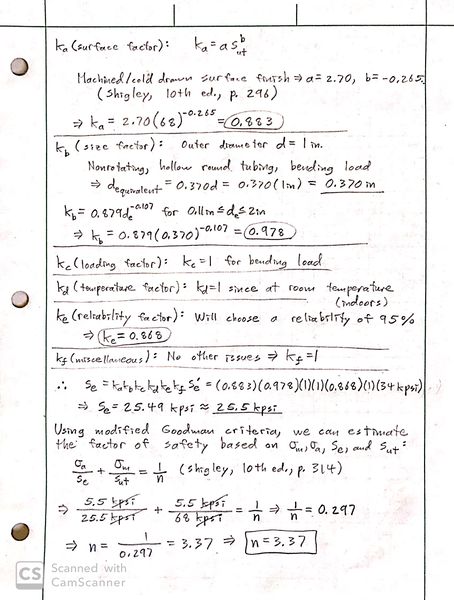 ka (surface factor): ka = a Sut^b
Machined/cold drawn surface finish ⇒ a = 2.70, b = -0.265
(Shigley, 10th ed., p. 296)
⇒ ka = 2.70(68)^-0.265 = 0.883
kb (size factor): Outer diameter d = 1 in.
Nonrotating, hollow round tubing, bending load
⇒ dequivalent = 0.370d = 0.370(1in) = 0.370 in
kb = 0.879de^-0.107 for 0.11in ≤ de ≤ 2in
⇒ kb = 0.879(0.370)^-0.107 = 0.978
kc (loading factor): kc = 1 for bending load
kd (temperature factor): kd = 1 since at room temperature
(indoors)
ke (reliability factor): Will choose a reliability of 95%
⇒ ke = 0.868
kf (miscellaneous): No other issues ⇒ kf = 1
∴ Se = ka kb kc kd ke kf Se' = (0.883)(0.978)(1)(1)(0.868)(1)(34 kpsi)
⇒ Se = 25.49 kpsi ≈ 25.5 kpsi
Using modified Goodman criteria, we can estimate
the factor of safety based on σm, σa, Se, and Sut:
σa/Se + σm/Sut = 1/n (Shigley, 10th ed., p. 314)
⇒ 5.5 kpsi/25.5 kpsi + 5.5 kpsi/68 kpsi = 1/n ⇒ 1/n = 0.297
⇒ n = 1/0.297 = 3.37 ⇒ n = 3.37
CS Scanned with
CamScanner